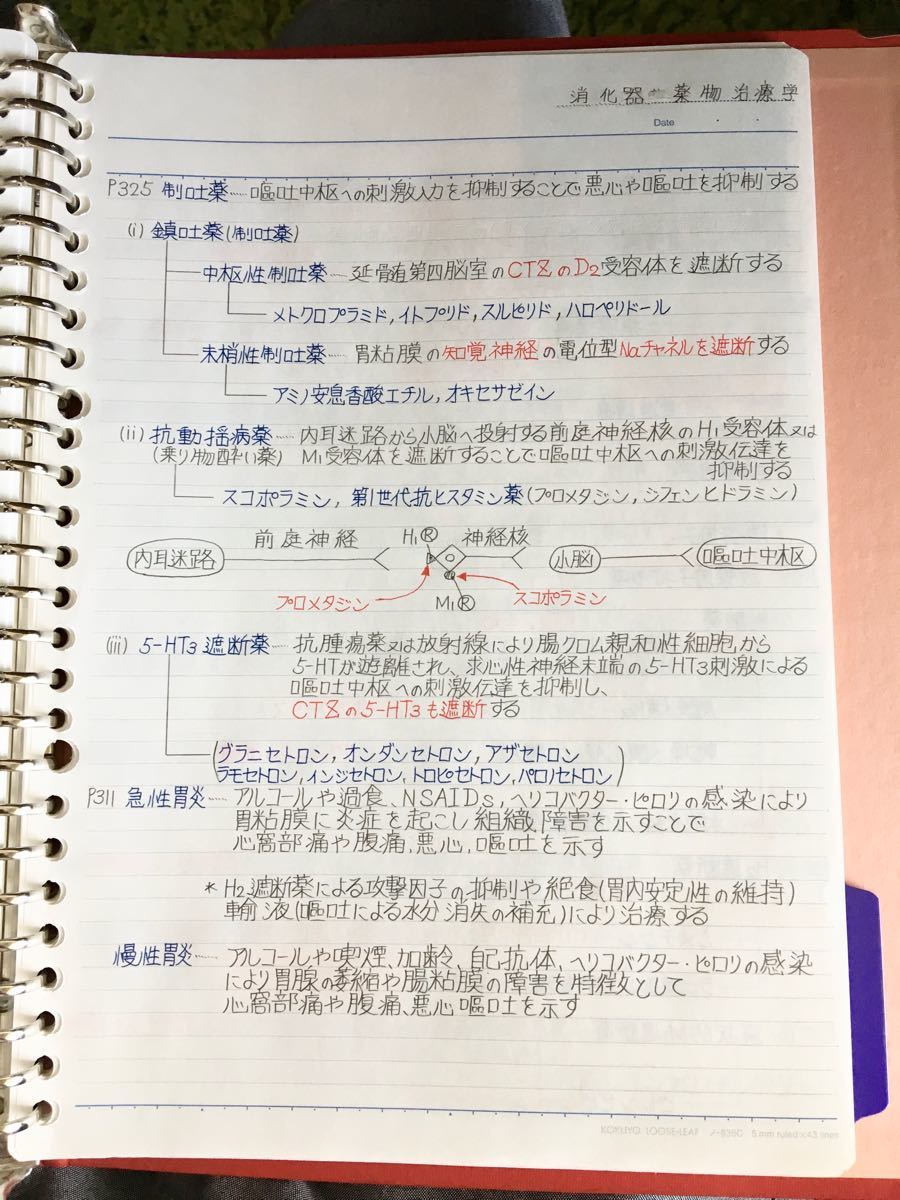 消化器 薬物治療学
Date
P325 制吐薬 …… 嘔吐中枢への刺激入力を抑制することで悪心や嘔吐を抑制する
(i) 鎮吐薬(制吐薬)
中枢性制吐薬 … 延骨髄第四脳室のCTZのD2受容体を遮断する
メトクロプラミド,イトプリド,スルピリド,ハロペリドール
末梢性制吐薬 … 胃粘膜の知覚神経の電位型Naチャネルを遮断する
アミノ安息香酸エチル,オキセサゼイン
(ii) 抗動揺病薬 …… 内耳迷路から小脳へ投射する前庭神経核のH1受容体又は
(乗り物酔い薬) M1受容体を遮断することで嘔吐中枢への刺激伝達を
抑制する
スコポラミン, 第1世代抗ヒスタミン薬(プロメタジン,ジフェンヒドラミン)
内耳迷路 前庭神経 H1Ⓡ 神経核 小脳 嘔吐中枢
プロメタジン M1Ⓡ スコポラミン
(iii) 5-HT3遮断薬 …… 抗腫瘍薬又は放射線により腸クロム親和性細胞から
5-HTが遊離され、求心性神経末端の5-HT3刺激による
嘔吐中枢への刺激伝達を抑制し、
CTZの5-HT3も遮断する
(グラニセトロン,オンダンセトロン,アザセトロン
ラモセトロン,インジセトロン,トロピセトロン,パロノセトロン)
P311 急性胃炎 …… アルコールや過食、NSAIDs,ヘリコバクター・ピロリの感染により
胃粘膜に炎症を起こし組織障害を示すことで
心窩部痛や腹痛、悪心,嘔吐を示す
* H2遮断薬による攻撃因子の抑制や絶食(胃内安定性の維持)
輸液(嘔吐による水分消失の補充)により治療する
慢性胃炎 …… アルコールや喫煙、加齢、自己抗体,ヘリコバクター・ピロリの感染
により胃腺の萎縮や腸粘膜の障害を特徴として
心窩部痛や腹痛、悪心嘔吐を示す
KOKUYO LOOSE-LEAF ノ-836C 5 mm ruled×43 lines